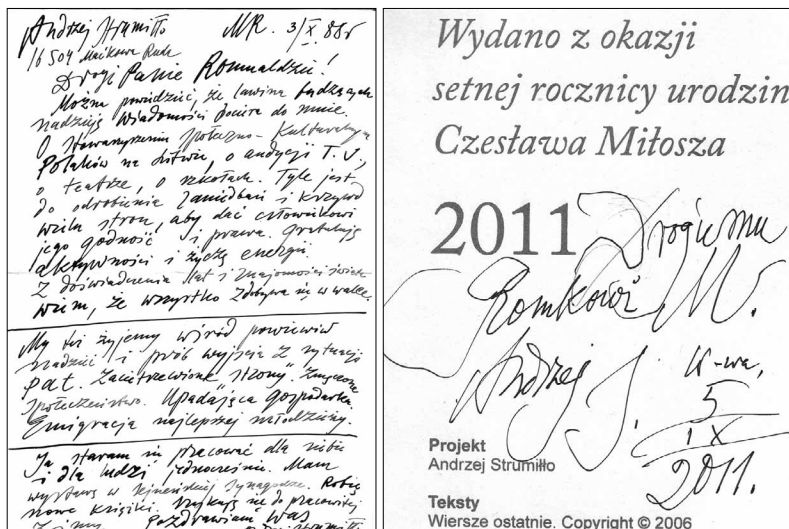 Andrzej Strumiłło MR. 3/X 88r
16504 Maćkowa Ruda
Drogi Panie Romualdzie!
Można powiedzieć, że lawina budzących
nadzieję wiadomości dociera do mnie.
O Stowarzyszeniu Społeczno-Kulturalnym
Polaków na Litwie, o audycji T.V.,
o teatrze, o szkołach. Tyle jest
do odrobienia zaniedbań i krzywd
wielu stron, aby dać człowiekowi
jego godność i prawa. Gratuluję
aktywności i życzę energii.
Z doświadczenia lat i znajomości świata
wiem, że wszystko zdobywa się w walce.
My też żyjemy wśród powiewów
nadziei i prób wyjścia z sytuacji
pat. Zacietrzewione "strony". Zmęczone
społeczeństwo. Upadająca gospodarka.
Emigracja najlepszej młodzieży.
Ja staram się pracować dla siebie
i dla ludzi jednocześnie. Mam
wystawę w sejneńskiej synagodze. Robię
nowe książki. do pracowitej
Zimy. Pozdrawiam Was
Wydano z okazji
setnej rocznicy urodzin
Czesława Miłosza
2011
Drogiemu
Romkowi M.
Andrzej S.
W-wa,
5
IX
2011.
Projekt
Andrzej Strumiłło
Teksty
Wiersze ostatnie. Copyright © 2006